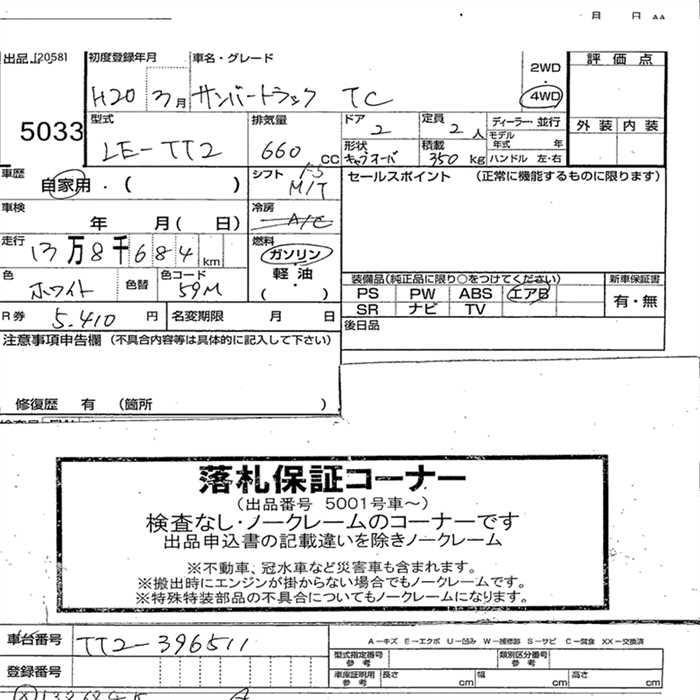 月 日
出品 [2058] 初度登録年月 車名・グレード
5033
H20 3月 サンバートラック TC
2WD
・
4WD
評価点
外装 内装
型式 LE-TT2
排気量 660 CC
ドア 2
定員 2 人
ディーラー・並行
モデル年式 年
形状 キャブオーバ
積載 350 kg
ハンドル 左・右
車歴 自家用・( )
シフト F5 M/T
セールスポイント (正常に機能するものに限ります)
車検 年 月( 日)
冷房 A/C
走行 13万8千684 km
燃料 ガソリン
・
軽油
( )
色 ホワイト 色替
色コード 59M
装備品(純正品に限り○をつけてください) 新車保証書
PS PW ABS エアB
SR ナビ TV
有・無
R券 5.410 円 名変期限 月 日
後日品
注意事項申告欄 (不具合内容等は具体的に記入して下さい)
修復歴 有 (箇所 )
落札保証コーナー
(出品番号 5001号車~)
検査なし・ノークレームのコーナーです
出品申込書の記載違いを除きノークレーム
※不動車、冠水車など災害車も含まれます。
※搬出時にエンジンが掛からない場合でもノークレームです。
※特殊特装部品の不具合についてもノークレームになります。
車台番号 TT2-396511
A-キズ E-エクボ U-凹み W-補修跡 S-サビ C-腐食 XX-交換済
型式指定番号 参考 類別区分番号 参考
登録番号
車庫証明用 参考 長さ cm 幅 cm 高さ cm